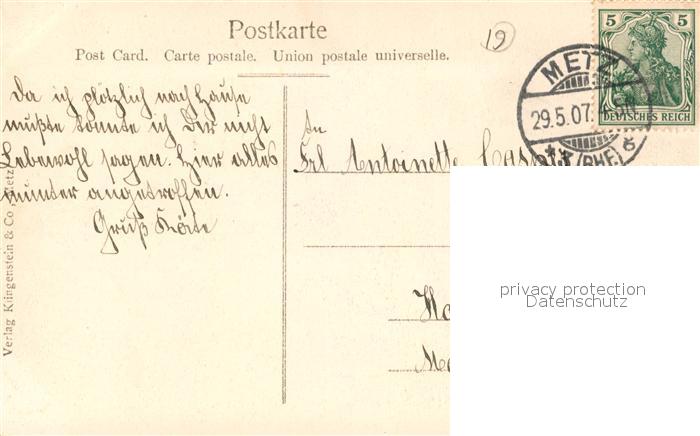 Postkarte
Post Card. Carte postale. Union postale universelle.
19
5 5
DEUTSCHES REICH
METZ
29.5.07.
Da ich plötzlich nach Hause
mußte konnte ich Dir nicht
Lebewohl sagen. Hier alles
munter angetroffen.
Gruß Käte
An
Frl Antoinette
Verlag Klingenstein & Co., Metz
privacy protection
Datenschutz